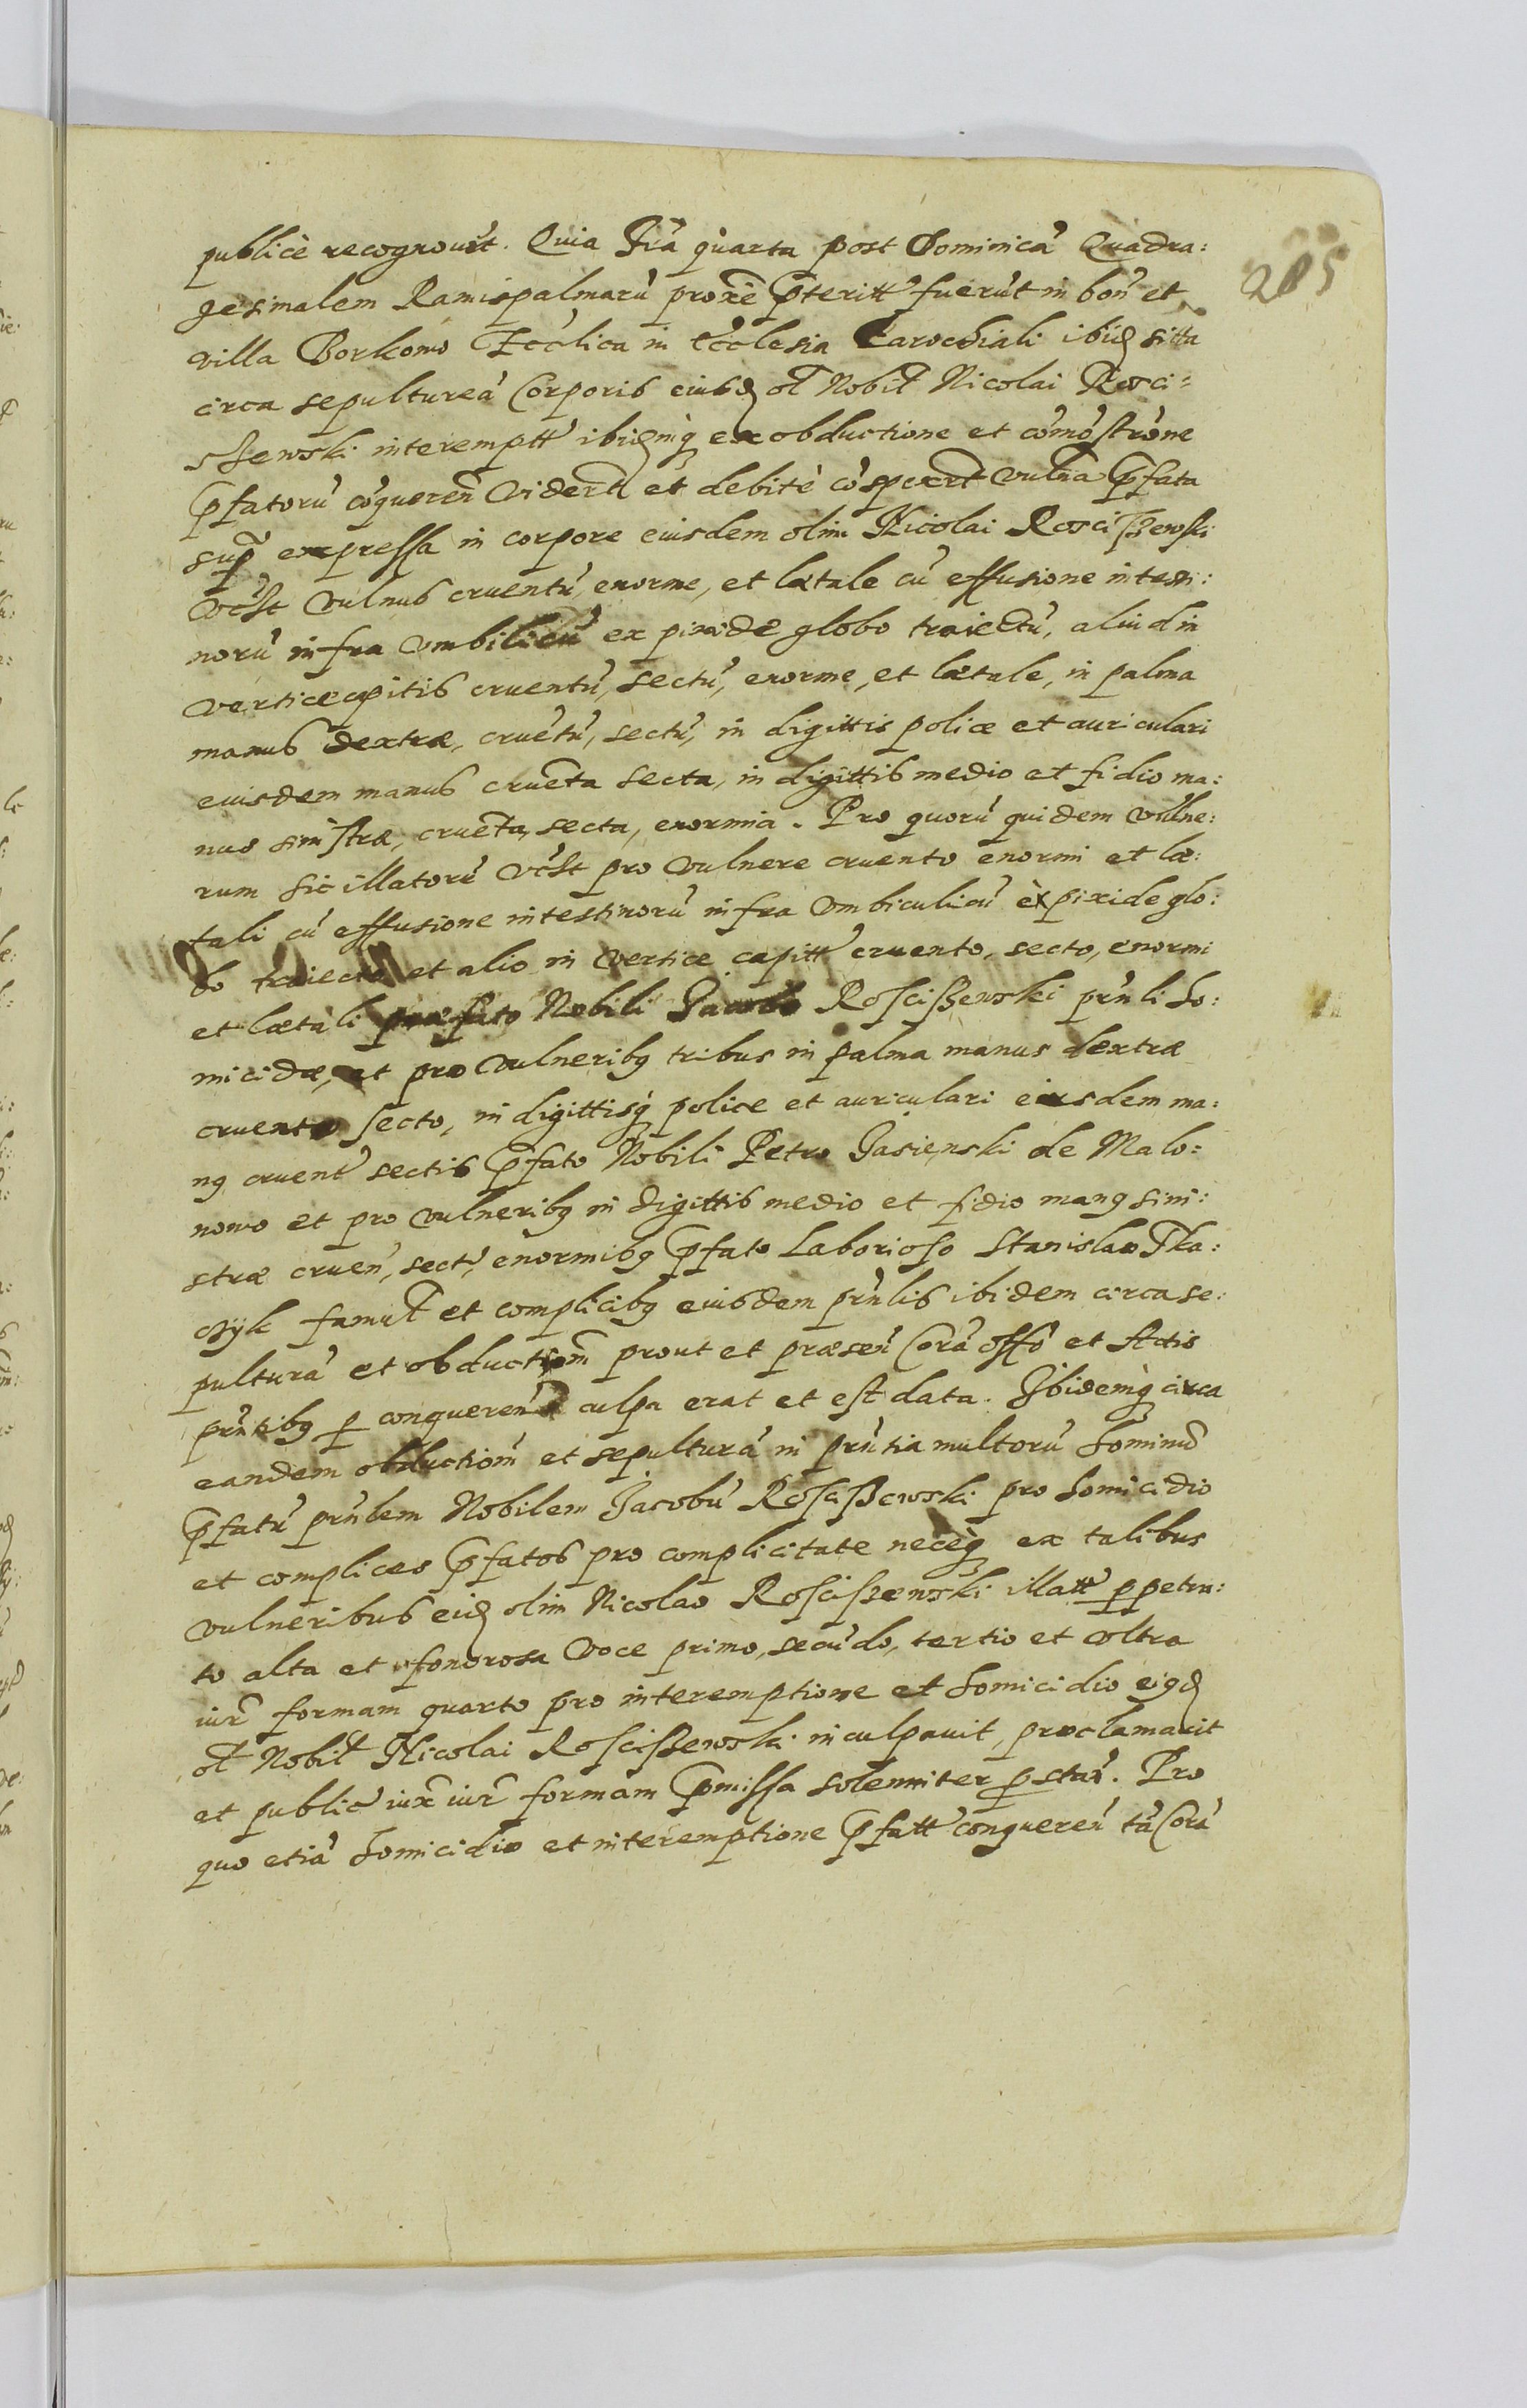 285
publicè recognovit. Quia Fr̃a quarta post Dominicã Quadra:
gesimalem Ramispalmarũ proxiẽ p̃teritt fuerũt in boñ et
villa Borkowo Ecc̃lica in Ecclesia Parochiali ibid̃ sitta
circa sepultureã Corporis eiusd̃ ol̃ Nobil̃ Nicolai Rosci=
szewski interemptt ibidemq̃ ex obductione et cõmõstrõne
p̃fatorũ cõquereñ viderũt et debitè cõspexert vulña p̃fata
sup̃ expressa in corpore eiusdem olim Nicolai Rosciszewski
vc̃st vulnus cruentũ, enorme, et lætale cũ effusione intesti:
norũ infra vmbilicũ ex pixide globo traiectũ, aliud in
vertice capitis cruentũ, sectũ, enorme, et lætale, in palma
manus dextræ, cruẽtũ, sectũ, in digittis police et auriculari
eiusdem manus cruẽta secta, in digittis medio et fidio ma:
nus sinistræ, cruẽta, secta, enormia. Pro quorũ quidem vulne:
rum sic illatorũ vc̃st pro vulnere cruento enormi et læ:
tali cũ effusione intestinorũ infra vmbiculicũ ex pixide glo:
bo traiecto et alio in vertice capitt cruento, secto, enormi
et lætali præfato Nobili Jacobo Roscissewski prñli ho:
micidæ, et pro vulneribq tribus in palma manus dextræ
cruento secto, in digittisq̃ police et auriculari eiusdem ma:
nq cruent sectis p̃fato Nobili Petro Jasienski de Malo:
nowo et pro vulneribq in digittis medio et fidio manq sini:
stræ crueñ, sect, enormibq p̃fato Laborioso Stanislao Tka:
czyk famul̃ et complicibq eiusdem prñlis ibidem circa se:
pulturã et obductiom̃ prout et præseñ Corã offõ et Actis
prñtibq p̱ conquereñ culpa erat et est data. Ibidemq̃ circa
eandem obductiom̃ et sepulturã in prñtia multorũ hominũ
p̃fatũ prñlem Nobilem Jacobũ Roscissewski pro homicidio
et complices p̃fatos pro complicitate neceq̃ ex talibus
vulneribus eid̃ olim Nicolao Roscissewski illatt p̱petra:
to alta et sonorosa voce primo, secũdo, tertio et vltra
iur̃ formam quarto pro interemptione et homicidio eiqd̃
ol̃ Nobil̃ Nicolai Roscissewski inculpavit, proclamavit
et public̃ iux̃ iur̃ formam p̃missa solemniter p̱stav̄. Pro
quo etiã homicidio et interemptione p̃fatt conquereñ tã Corã